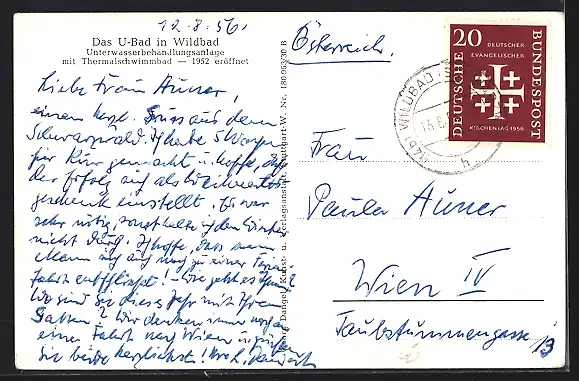 12.8.56.
Das U-Bad in Wildbad
Unterwasserbehandlungsanlage
mit Thermalschwimmbad — 1952 eröffnet
Liebe Frau Auner,
einen herzl. Gruss aus dem
Schwarzwald. Ich habe 5 Wochen
hier Kur gemacht u. hoffe, daß
der Erfolg sich als Weihnachts
geschenk einstellt. Es war
sehr nötig, sonst halte ich den Winter
nicht durch. Ich hoffe, dass mein
Mann sich auch noch zu einer Ferien
fahrt entschliesst! - Wie geht es Ihnen?
Wo sind Sie dieses Jahr mit Ihrem
Gatten? Wir denken immer noch an
eine Fahrt nach Wien u. grüßen
Sie beide herzlichst!
Georg Dangel, Kunst- u. Verlagsanstalt, Stuttgart-W. Nr. 180 953/30 B
Österreich.
20
DEUTSCHER
EVANGELISCHER
KIRCHENTAG 1956
DEUTSCHE
BUNDESPOST
WILDBAD
h
Frau
Paula Auner
Wien IV
Taubstummengasse 13